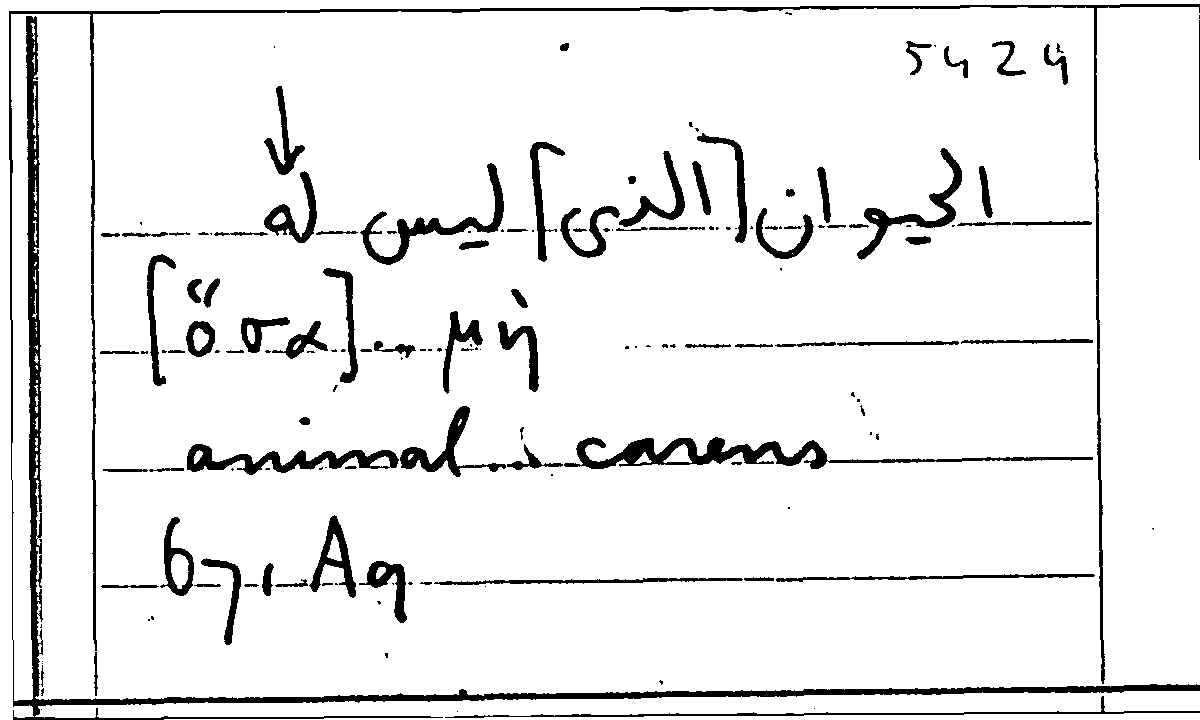 5424
الحيوان [الذى] ليس له
[ὅσα] .. μὴ
animal .. carens
67, A9